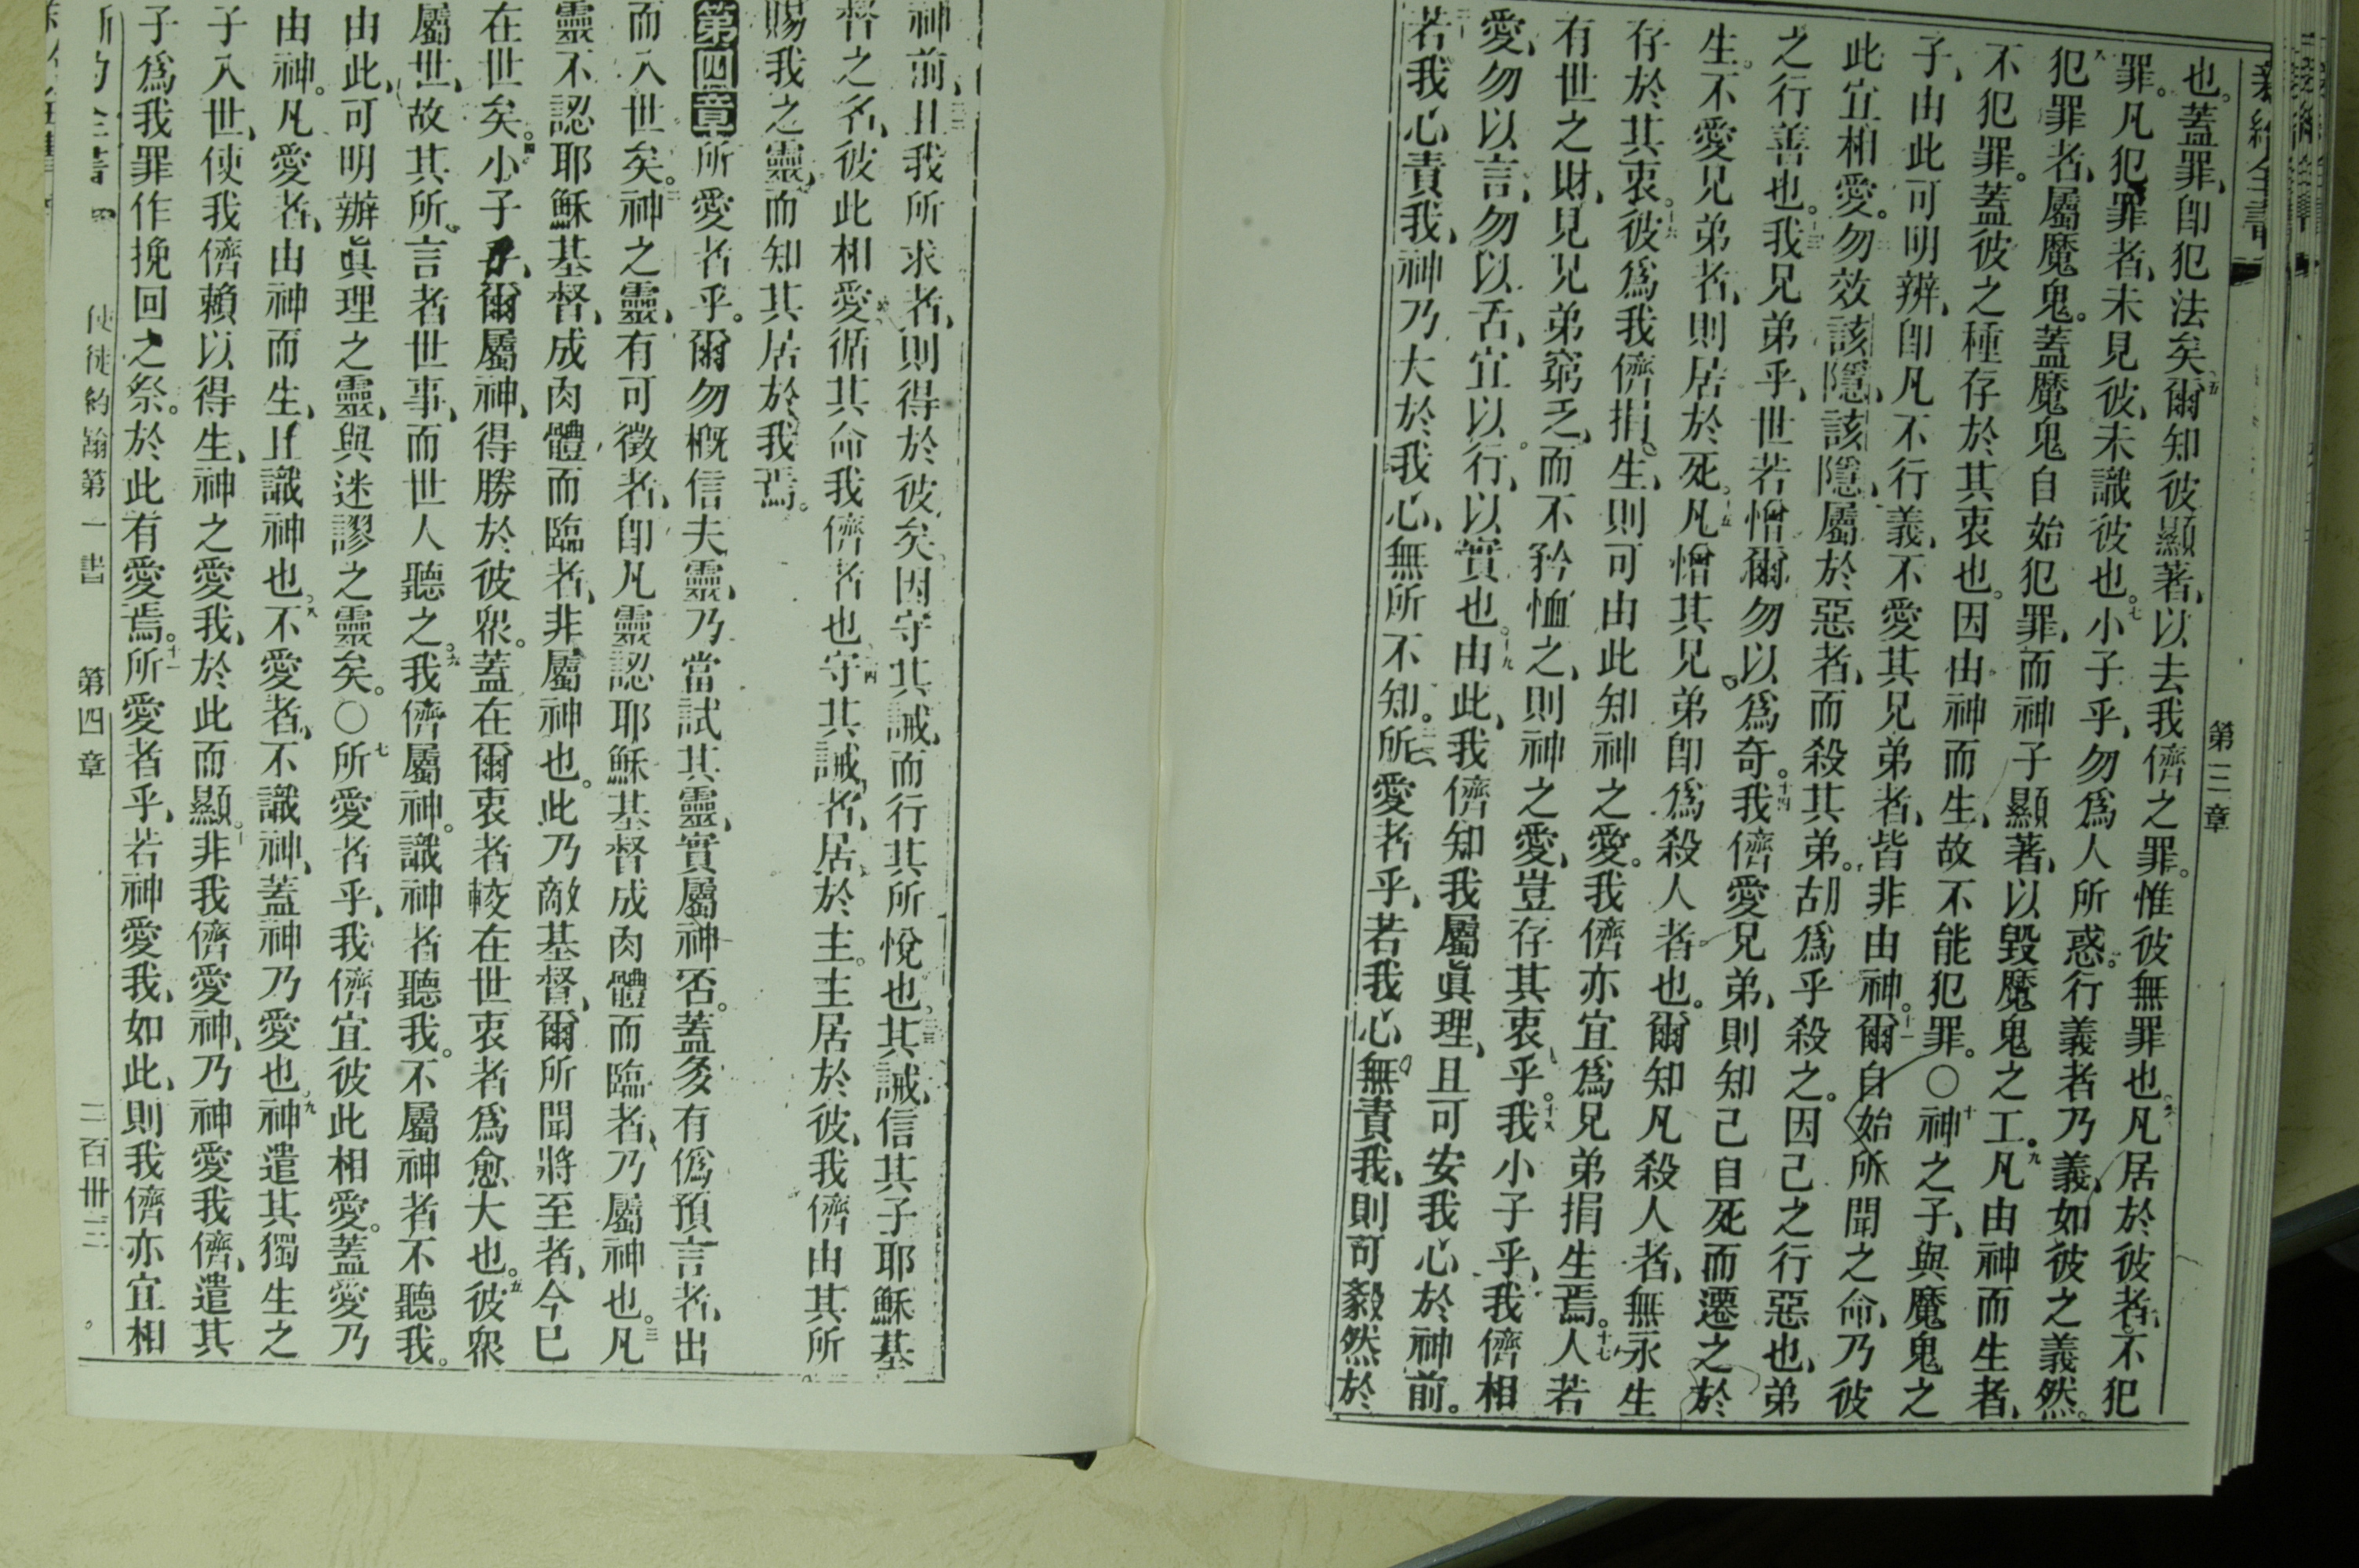 新約全書
第三章
也。蓋罪、卽犯法矣五爾知彼顯著、以去我儕之罪。惟彼無罪也。六凡居於彼者、不犯
罪。凡犯罪者、未見彼、未識彼也。七小子乎、勿爲人所惑。行義者乃義、如彼之義然。
八犯罪者、屬魔鬼。蓋魔鬼自始犯罪、而神子顯著、以毀魔鬼之工。九凡由神而生者、
不犯罪。蓋彼之種存於其衷也。因由神而生、故不能犯罪。〇十神之子、與魔鬼之
子、由此可明辨、卽凡不行義、不愛其兄弟者、皆非由神。十一爾自始所聞之命、乃彼
此宜相愛。十二勿效該隱、該隱屬於惡者、而殺其弟。胡爲乎殺之。因己之行惡也、弟
之行善也。十三我兄弟乎、世若憎爾、勿以爲奇。十四我儕愛兄弟、則知己自死而遷之於
生。不愛兄弟者、則居於死。十五凡憎其兄弟卽爲殺人者也。爾知凡殺人者、無永生
存於其衷。十六彼爲我儕捐生、則可由此知神之愛。我儕亦宜爲兄弟捐生焉。十七人若
有世之財、見兄弟窮乏、而不矜恤之、則神之愛、豈存其衷乎。十八我小子乎、我儕相
愛、勿以言、勿以舌、宜以行、以實也。十九由此、我儕知我屬眞理、且可安我心於神前。
二十若我心責我、神乃大於我心、無所不知。二一所愛者乎、若我心無責我、則可毅然於
神前、二二且我所求者、則得於彼矣。因守其誡、而行其所悅也。二三其誡、信其子耶穌基
督之名、彼此相愛、循其命我儕者也。二四守其誡者、居於主。主居於彼、我儕由其所
賜我之靈、而知其居於我焉。
第四章 所愛者乎。爾勿槪信夫靈、乃當試其靈、實屬神否。蓋多有僞預言者、出
而入世矣。二神之靈、有可徵者、卽凡靈認耶穌基督成肉體而臨者、乃屬神也。三凡
靈不認耶穌基督、成肉體而臨者、非屬神也。此乃敵基督、爾所聞將至者、今已
在世矣。四小子乎、爾屬神、得勝於彼衆。蓋在爾衷者、較在世衷者爲愈大也。五彼衆
屬世、故其所言者世事、而世人聽之。六我儕屬神。識神者聽我。不屬神者不聽我。
由此、可明辨眞理之靈、與迷謬之靈矣。〇七所愛者乎、我儕宜彼此相愛。蓋愛乃
由神。凡愛者、由神而生、且識神也。八不愛者、不識神、蓋神乃愛也。九神遣其獨生之
子入世、使我儕賴以得生、神之愛我、於此而顯。十非我儕愛神、乃神愛我儕、遣其
子爲我罪作挽回之祭。於此有愛焉。十一所愛者乎、若神愛我、如此、則我儕亦宜相
新約全書 使徒約翰第一書 第四章 二百卅三